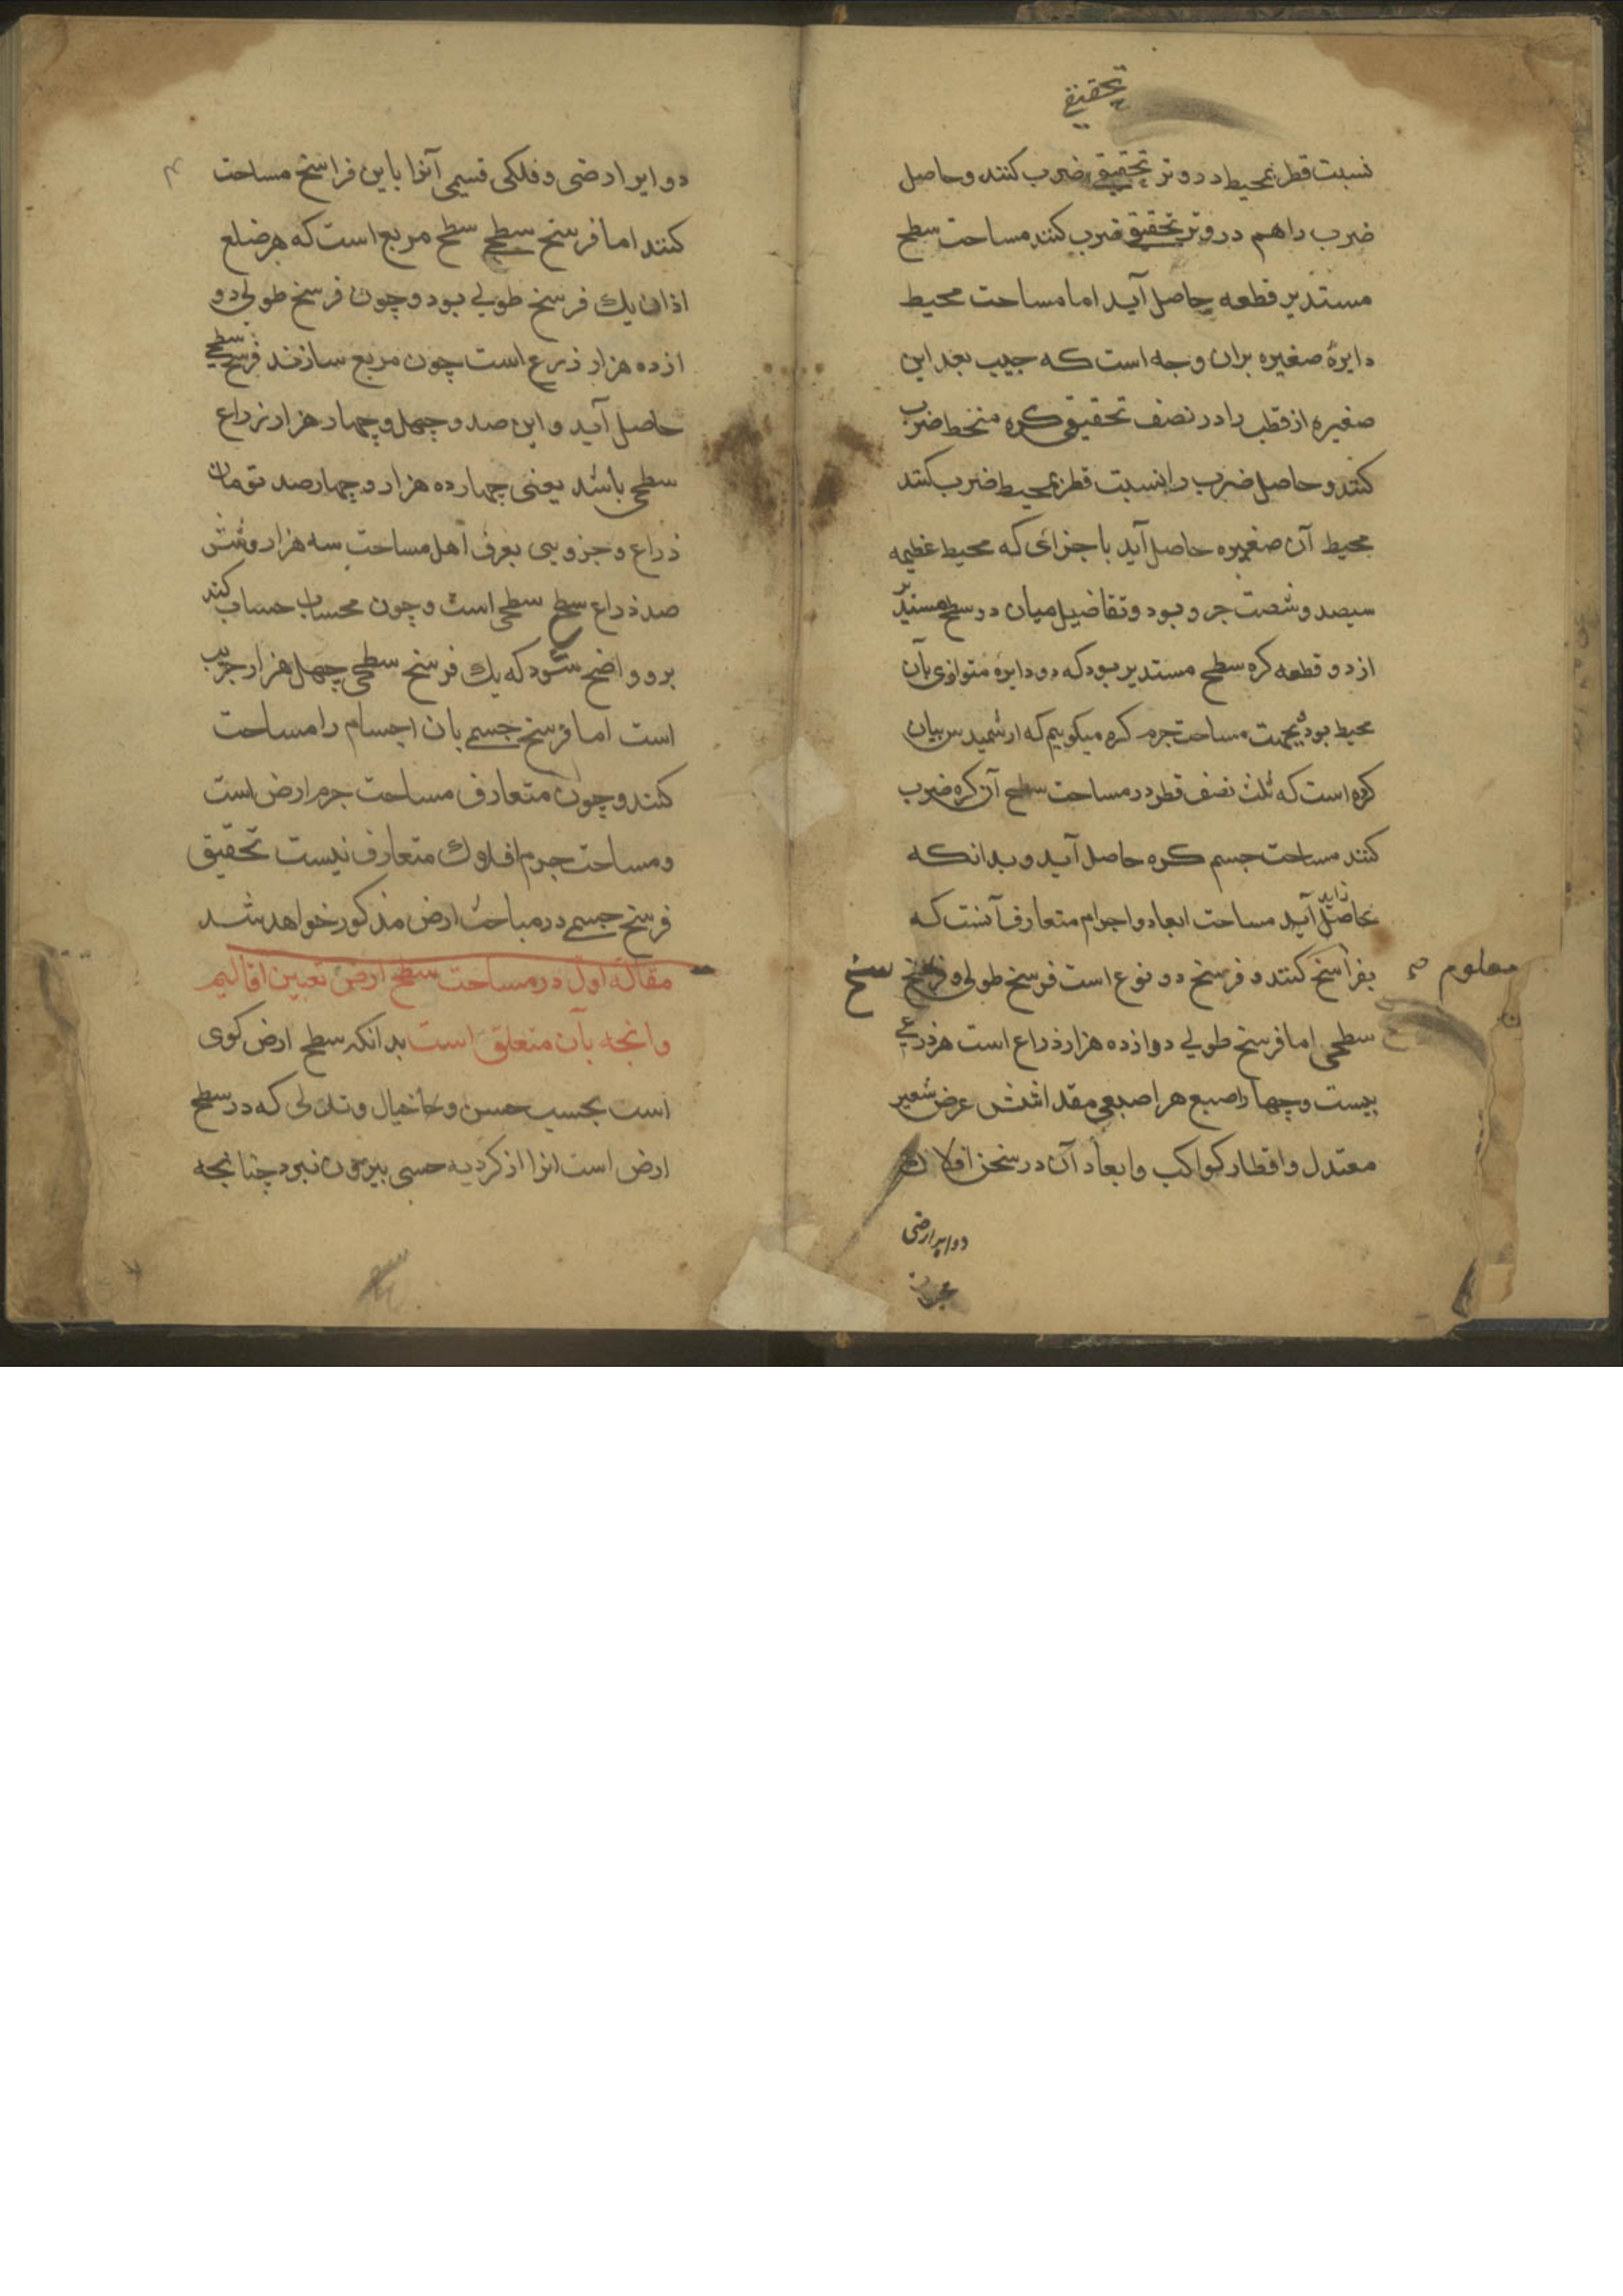 تحقیقی
نسبت قطر بمحیط در وتر تحقیقی ضرب کنند و حاصل
ضرب را هم در وتر تحقیقی ضرب کنند مساحت سطح
مستدیر قطعه حاصل آید اما مساحت محیط
دایرهٔ صغیره بران وجه است که جیب بعد این
صغیره از قطب را در نصف تحقیقی کره منحط ضرب
کنند و حاصل ضرب را نسبت قطر بمحیط ضرب کنند
محیط آن صغیره حاصل آید باجزای که محیط عظیمه
سیصد و شصت جزو بود و تفاضیل میان دو سطح مستدیر
از دو قطعه کره سطح مستدیر بود که دو دایره متوازی بآن
محیط بود بجهت مساحت جرم کره میکوییم که ارشمیدس بیان
کرده است که ثلث نصف قطر در مساحت سطح آن کره ضرب
کنند مساحت جسم کره حاصل آید و بدانکه
حاصل آید مساحت ابعاد و اجرام متعارف آنست که
بفراسخ کنند و فرسخ دو نوع است فرسخ طولی و فرسخ
معلوم
سطحی اما فرسخ طولی دوازده هزار ذراع است هر ذرعی
بیست و چهار اصبع هر اصبعی مقدار شش عرض شعیر
معتدل و اقطار کواکب و ابعاد آن در سخن افلاک
دوایر ارضی
دوایر ارضی و فلکی قسیمی آنرا باین فراسخ مساحت
کنند اما فرسخ سطحی سطح مربع است که هر ضلع
ازان یک فرسخ طولی بود و چون فرسخ طولی دو
ازده هزار ذرع است چون مربع سازند فرسخ سطحی
حاصل آید و این صد و چهل و چهار هزار ذراع
سطحی باشد یعنی چهارده هزار و چهارصد تومان
ذراع و جزویبی بعرف اهل مساحت سه هزار و شش
صد ذراع سطح سطحی است و چون محساب حساب کند
برو واضح شود که یک فرسخ سطحی چهل هزار جریب
است اما فرسخ جسمی بان اجسام را مساحت
کنند و چون متعارف مساحت جرم ارض است
و مساحت جرم افلاک متعارف نیست تحقیق
فرسخ جسمی در مباحث ارض مذکور خواهد شد
مقالهٔ اول در مساحت سطح ارض تعیین اقالیم
وانجه بآن متعلق است بدانکه سطح ارض کوی
است بحسب حسن و تذللی که در سطح
ارض است انرا از کردیه حسی بیرون نبرد چنانجه